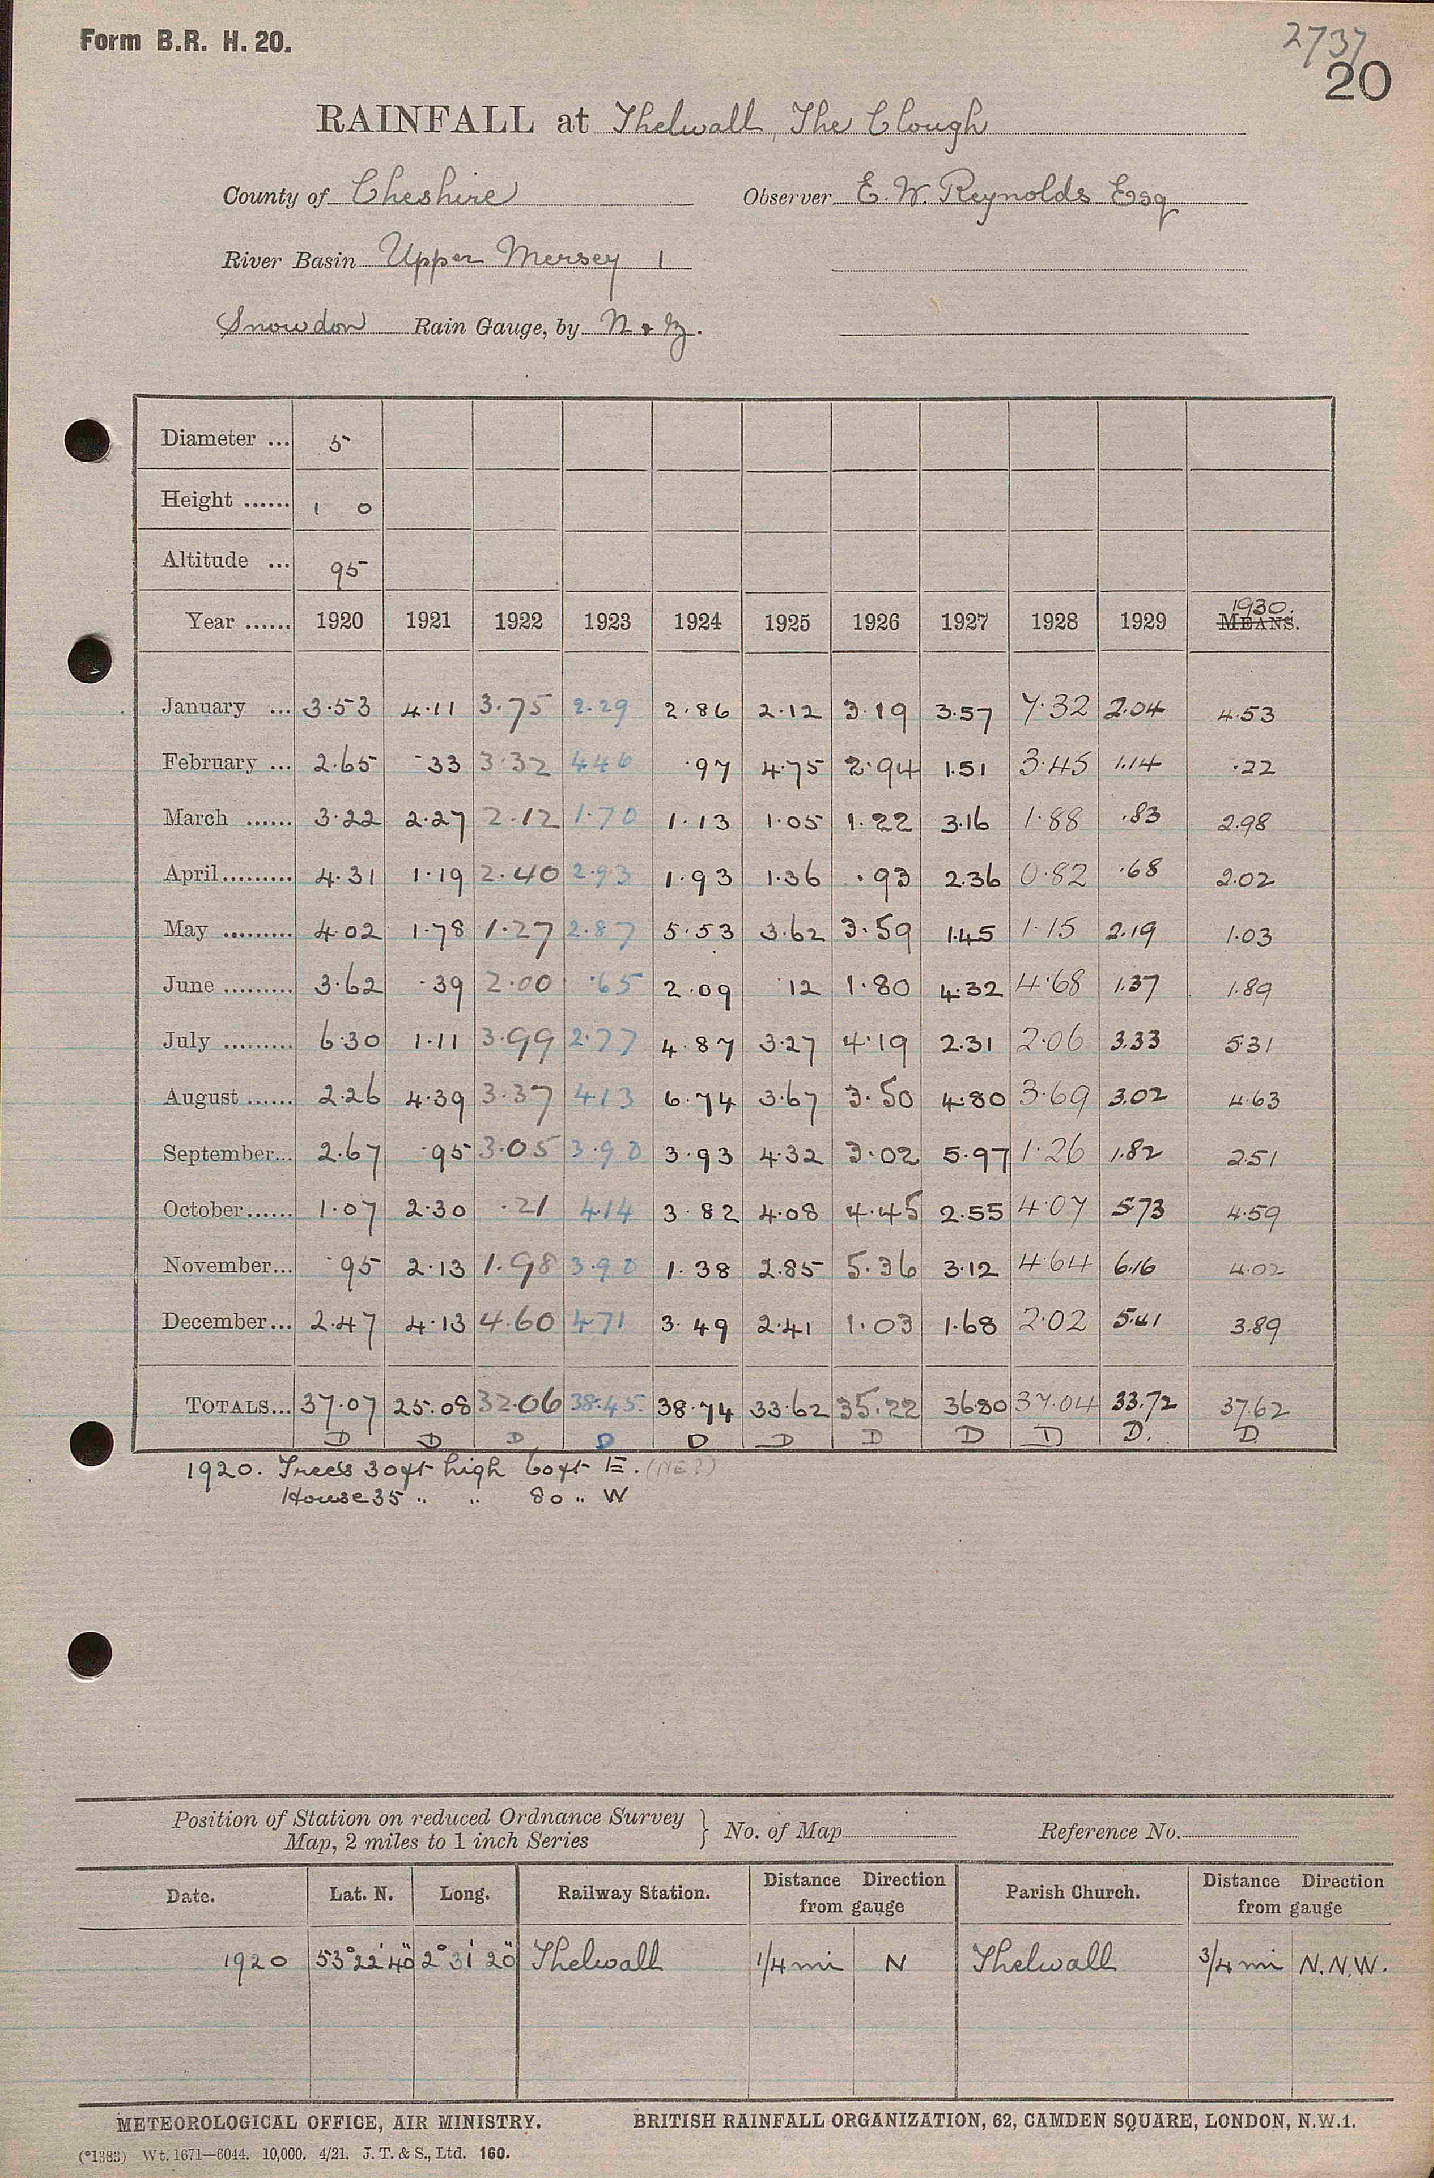 Form B.R. H. 20.
2737
20
RAINFALL at Thelwall, The Clough
County of Cheshire Observer E. W. Reynolds Esq
River Basin Upper Mersey 1
Snowdon Rain Gauge, by N & Z.
Diameter ... 5
Height ...... 1 0
Altitude ... 95
Year ...... 1920 1921 1922 1923 1924 1925 1926 1927 1928 1929 1930. MEANS.
January ... 3.53 4.11 3.75 2.29 2.86 2.12 3.19 3.57 7.32 2.04 4.53
February ... 2.65 .33 3.32 4.46 .97 4.75 2.94 1.51 3.45 1.14 .22
March ...... 3.22 2.27 2.12 1.70 1.13 1.05 1.22 3.16 1.88 .83 2.98
April......... 4.31 1.19 2.40 2.93 1.93 1.36 .93 2.36 0.82 .68 2.02
May ......... 4.02 1.78 1.27 2.87 5.53 3.62 3.59 1.45 1.15 2.19 1.03
June ......... 3.62 .39 2.00 .65 2.09 .12 1.80 4.32 4.68 1.37 1.89
July ......... 6.30 1.11 3.99 2.77 4.87 3.27 4.19 2.31 2.06 3.33 5.31
August ...... 2.26 4.39 3.37 4.13 6.74 3.67 3.50 4.80 3.69 3.02 4.63
September... 2.67 .95 3.05 3.90 3.93 4.32 3.02 5.97 1.26 1.82 2.51
October...... 1.07 2.30 .21 4.14 3.82 4.08 4.45 2.55 4.07 5.73 4.59
November... .95 2.13 1.98 3.90 1.38 2.85 5.36 3.12 4.64 6.16 4.02
December... 2.47 4.13 4.60 4.71 3.49 2.41 1.03 1.68 2.02 5.41 3.89
TOTALS... 37.07 25.08 32.06 38.45 38.74 33.62 35.22 36.80 37.04 33.72 37.62
D D D D D D D D D D. D
1920. Trees 30ft high 60ft E. (NE?)
House 35 " " 80 " W
Position of Station on reduced Ordnance Survey
Map, 2 miles to 1 inch Series } No. of Map Reference No.
Date. Lat. N. Long. Railway Station. Distance Direction from gauge Parish Church. Distance Direction from gauge
1920 53°22'40" 2°31'20" Thelwall 1/4 mi N Thelwall 3/4 mi N.N.W.
METEOROLOGICAL OFFICE, AIR MINISTRY. BRITISH RAINFALL ORGANIZATION, 62, CAMDEN SQUARE, LONDON, N.W.1.
(*1383) Wt. 1671—6044. 10,000. 4/21. J. T. & S., Ltd. 160.